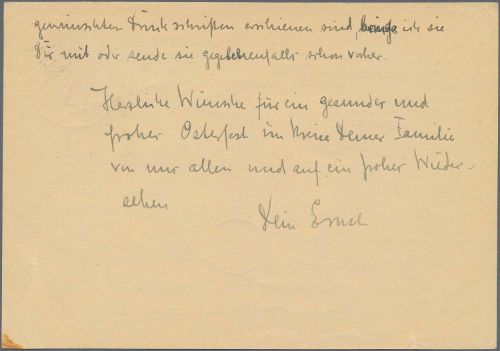 gewünschten Druckschriften erschienen sind bringe ich sie
Dir mit oder sende sie gegebenenfalls schon vorher.
Herzliche Wünsche für ein gesundes und
frohes Osterfest im Kreise Deiner Familie
von uns allen und auf ein frohes Wieder-
sehen
Dein Ernst